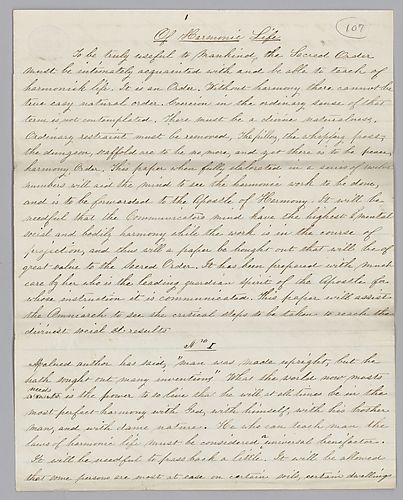 107
1
Of Harmonic Life
To be truly useful to Mankind, the Sacred Order
must be intimately acquainted with and be able to teach of
harmonick life. It is an Order. Without harmony there cannot be
true easy natural order. Coercion in the ordinary sense of that
term is not contemplated. There must be a divine naturalness.
Ordinary restraint must be removed. The pillory, the whipping post,
the dungeon, scaffold are to be no more, and yet there is to be peace,
harmony Order. This paper when fully elaborated in a series of twelve
numbers will aid the mind to see the harmonic work to be done,
and is to be forwarded to the Apostle of Harmony. It will be
needful that the Communicators mind have the highest mental
social and bodily harmony while the work is in the course of
projection, and thus will a paper be bought out that will be of
great value to the Sacred Order. It has been prepared with much
care by her who is the leading guardian spirit of the Apostle for
whose instruction it is communicated. This paper will assist
the Omniarch to see the critical steps to be taken to reach the
divinest social results
No. I
A valued author has said, "man was made upright, but he
hath sought out many inventions". What the world now most
needs is the power to so live that he will at all times be in the
most perfect harmony with God, with himself, with his brother
man, and with dame nature. He who can teach man the
laws of harmonic life must be considered a universal benefactor.
It will be needful to pass back a little. It will be allowed
that some persons are most at ease on certain soils, certain dwellings